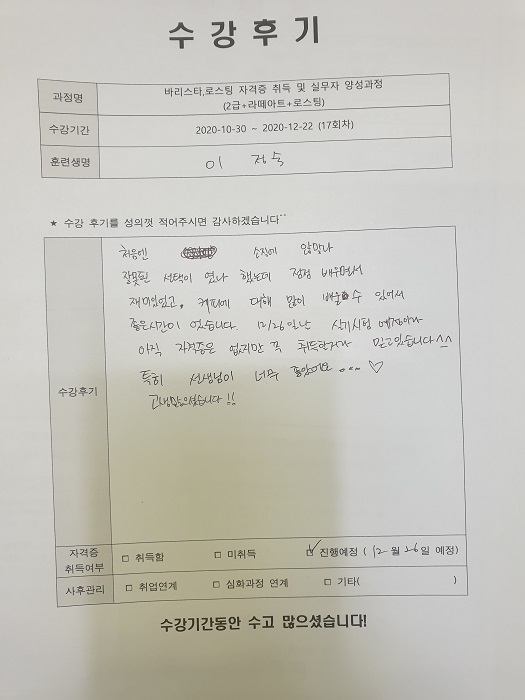 수강후기
과정명
바리스타,로스팅 자격증 취득 및 실무자 양성과정
(2급+라떼아트+로스팅)
수강기간
2020-10-30 ~ 2020-12-22 (17회차)
훈련생명
이 정숙
★ 수강 후기를 성의껏 적어주시면 감사하겠습니다^^
수강후기
처음엔 소질에 않맞나
잘못된 선택이 였나 했는데 점점 배우면서
재미있었고, 커피에 대해 많이 배울수 있어서
좋은시간이 었습니다. 12/26일난 실기시험 예정이라
아직 자격증은 없지만 꼭 취득한거라 믿고있습니다^^
특히 선생님이 너무 좋았어요 .... ♡
고생많으셨습니다!!
자격증
취득여부
□ 취득함
□ 미취득
☑ 진행예정 ( 12월 26일 예정)
사후관리
□ 취업연계
□ 심화과정 연계
□ 기타( )
수강기간동안 수고 많으셨습니다!